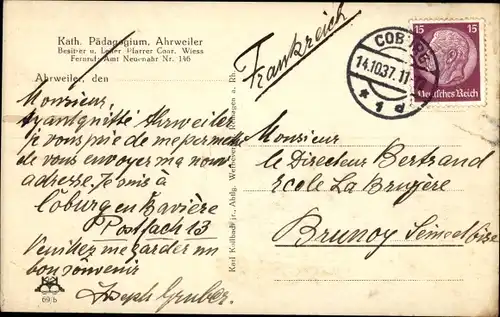 Kath. Pädagogium, Ahrweiler
Besitzer u. Leiter Pfarrer Conr. Wiess
Fernruf: Amt Neuenahr Nr. 146
Ahrweiler, den
Monsieur,
Ayant quitté Ahrweiler
je vous prie de me permettre
de vous envoyer ma nouv.
adresse. Je suis à
Coburg en Bavière
Postfach 13
Veuillez me garder un
bon souvenir
Joseph Gruber.
69/b
Karl Kollbach jr., Abtlg.
a. Rh.
Frankreich
COBURG
14.10.37. 11-
* 1 d
15 15
Deutsches Reich
Monsieur
le Directeur Bertrand
Ecole La Bruyère
Brunoy Seine et Oise